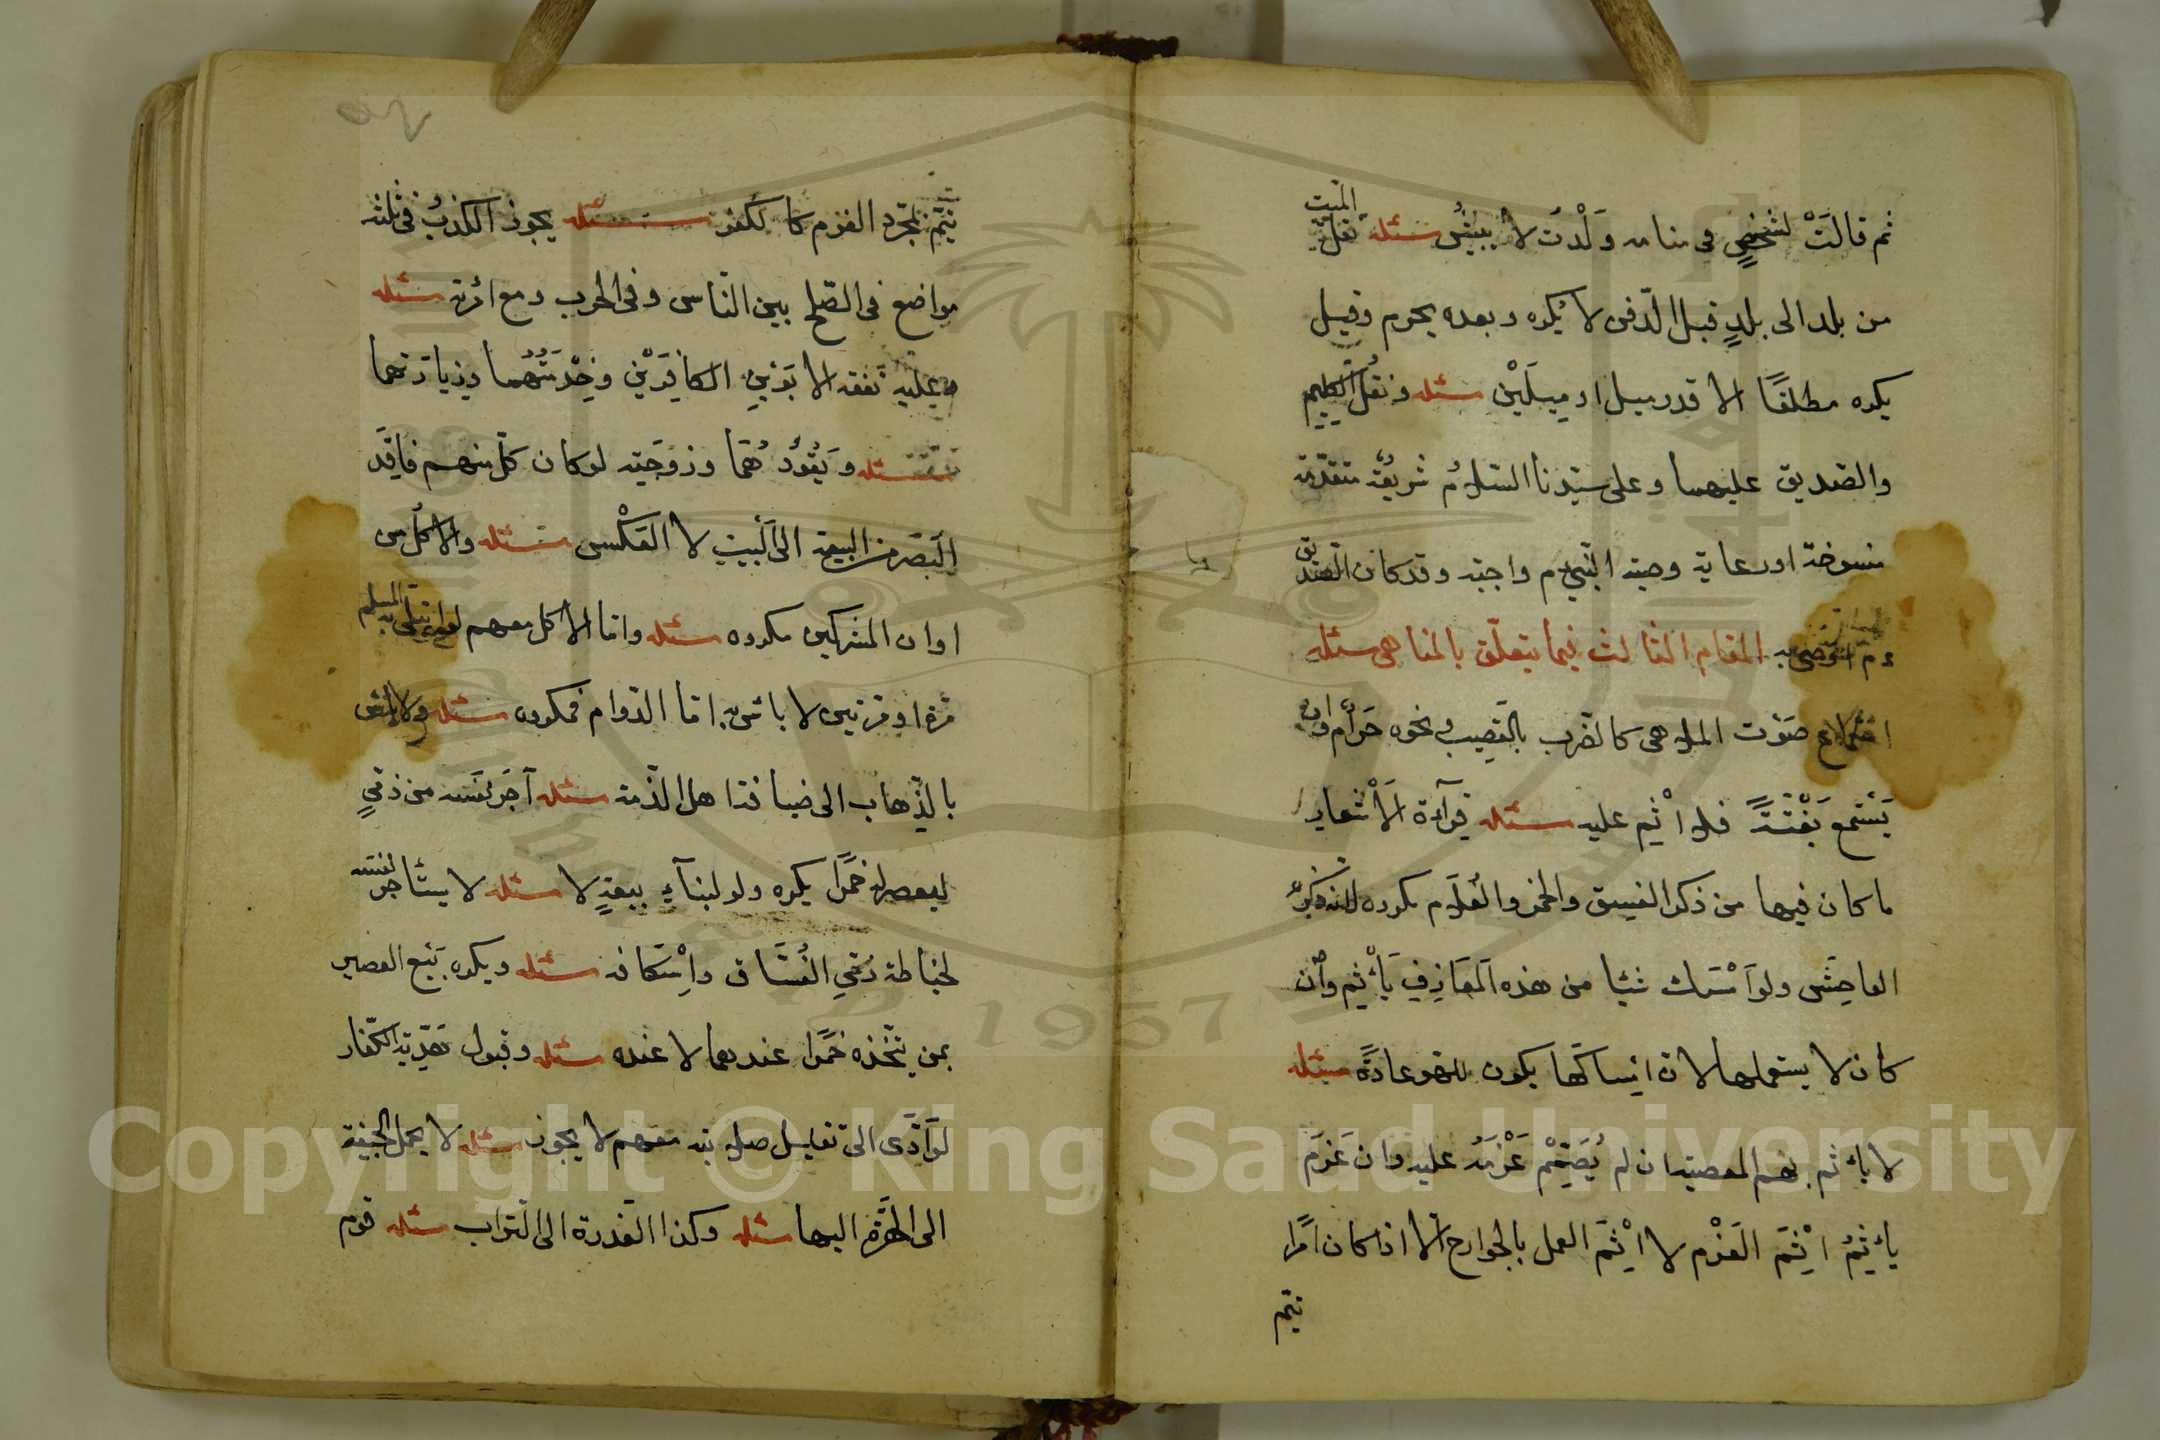 ثم قالَتْ لشخصٍ فى منامه وَلَدْتُ لا ينبشُ مسئله نقل الميت
من بلد الى بلدٍ قبل الدّفن لا يُكره وبعده يحرم وقيل
يكره مطلقًا الا قدر ميل او ميلَيْن مسئله ونقل الكليم
والصّديق عليهما وعلى سيّدنا السّلامُ شريعَةٌ متقدّمة
منسوخة او رعاية وصية النّبىّ م واجبة وقد كان الصّديق
ع م اوصى به المقام الثّالث فيما يتعلّق بالمناهى مسئله
استماع صَوْت الملاهى كالضّرب بالقَضِيب ونحوه حَرامٌ وان
يَسْتَمع بَغْتَةً فلا اثم عليه مسئله قرآءة الاشعار
ما كان فيها من ذكر الفسق والخمر والغلام مكروه لانه ذكرُ
الفاحِشَى ولو اَمْسَك شيئا من هذه المَعَازِفِ يأثم وان
كان لا يستعملها لان امساكها يكون للهو عادةً مسئله
لا يأثم بهمّ المعصية ان لم يُصَمِّمْ عَزْمَهُ عليه وان عَزَمَ
يأثمُ اِثْمَ العَزْم لا اِثْمَ العمل بالجوارح الا اذا كان امرًا
يتم
يتمّ بمجرّد العزم كالكفر مسئله يجوز الكذبُ فى ثلثة
مواضع فى الصّلح بين النّاس وفى الحرب ومع امرئته مسئله
وعليه نفقه الابوَيْنِ الكافِرَيْن وخِدْمَتُهُما وزيارتهما
مسئله ويَقُودُ هُمَا وزوجَتِه لو كان كلّ منهم فاقِدَ
البَصَر من البيعة الى البَيْتِ لا العَكْسِ مسئله والاكل من
اوان المشركين مكروه مسئله وامّا الاكل معهم لو ابتلى به المسلم
مرّة او مرّتين لا بأس به امّا الدّوام فمكروه مسئله ولا بأس
بالذّهاب الى ضيافة اهل الذّمة مسئله آجَر نَفسه من ذمّىٍ
ليعصر له خمرًا يكره ولو لبنآءِ بيعةٍ لا مسئله لا يستأجر نفسه
لخياطة زىّ الفُسّاق واِسْكافه مسئله ويكره بَيْع العصير
بمن يتّخذه خمرًا عندهما لا عنده مسئله وقبول هَدِيّة الكفّار
لو اَدّى الى تقليل صلابته معهم لا يجوز مسئله لا يحمل الجيفة
الى الهِرّة بل الهِرّة اليها مسئله وكذا القذرة الى التّراب مسئله قوم